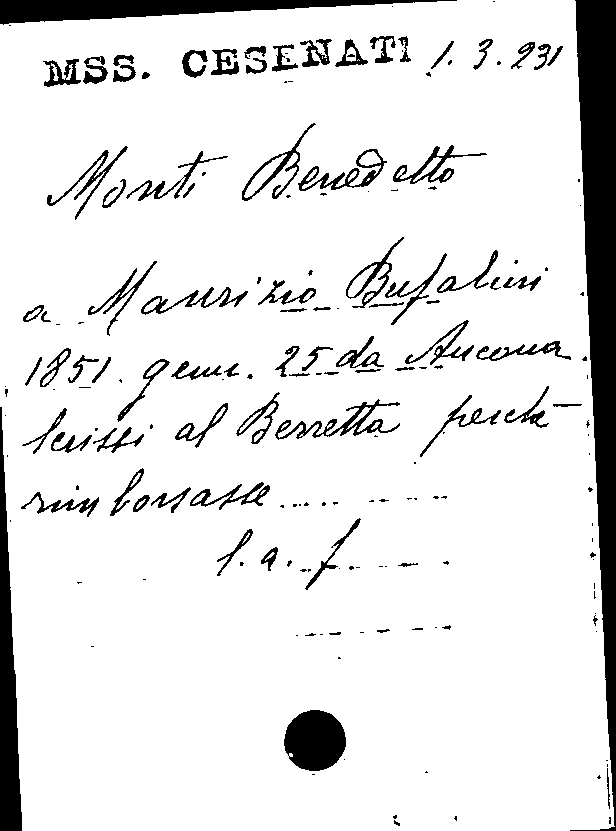 MSS. CESENATI 1.3.231
Monti Benedetto
a Maurizio Bufalini
1851. genn. 25 da Ancona.
Scrissi al Berretta perché
rimborsasse.....
l. a. f.